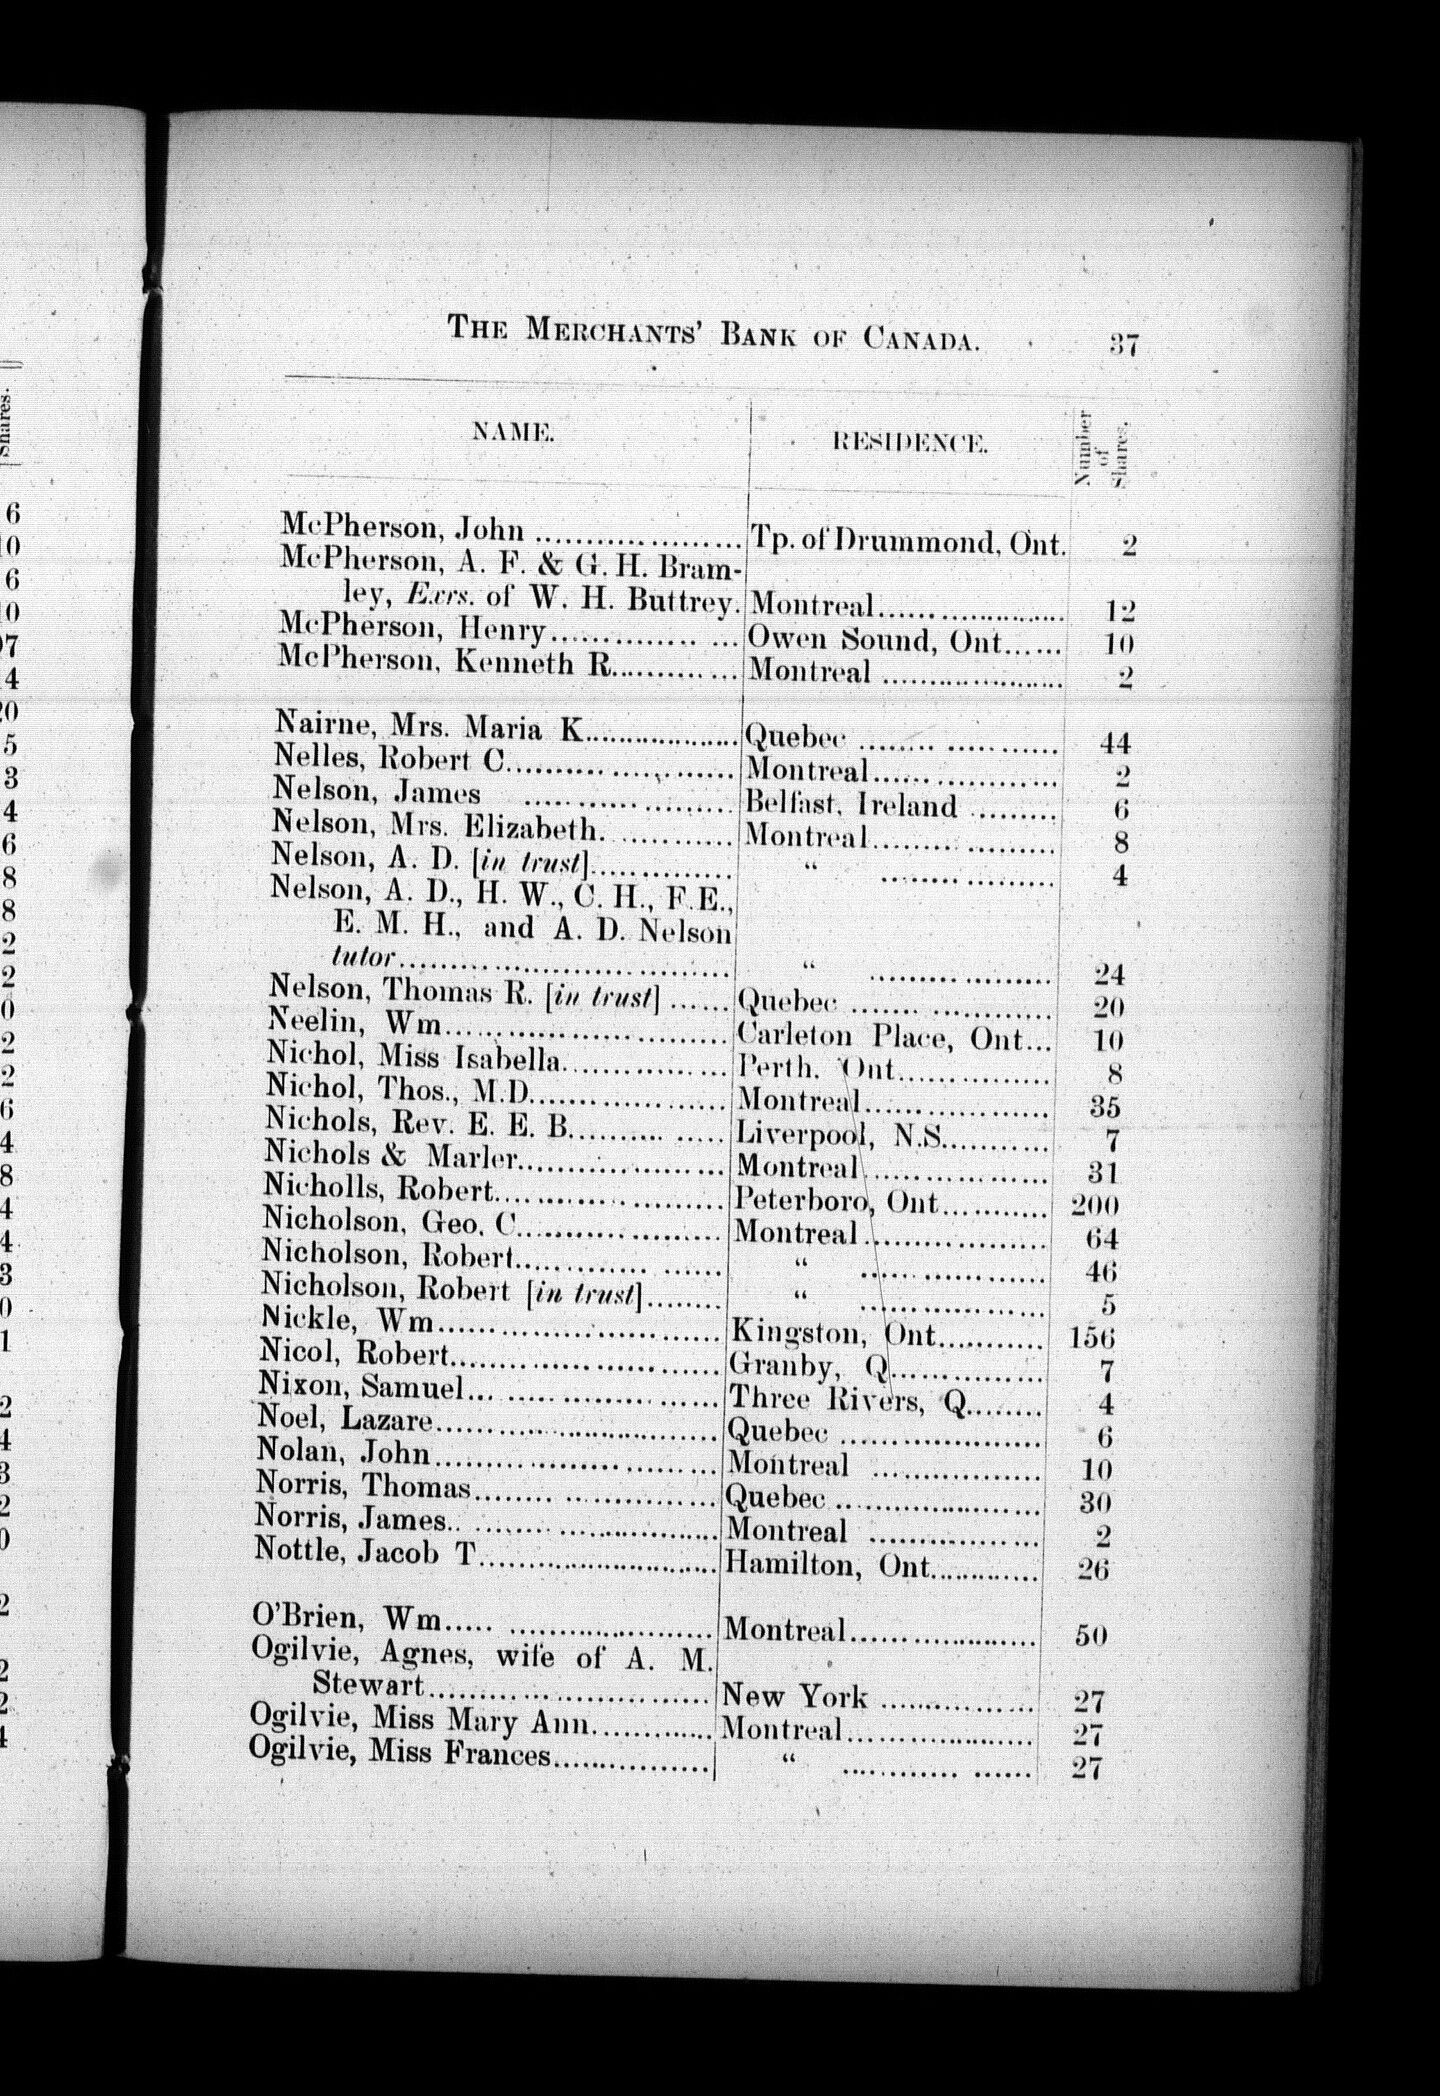 THE MERCHANTS' BANK OF CANADA. 37
NAME. RESIDENCE. Number of Shares.
McPherson, John .................... Tp. of Drummond, Ont. 2
McPherson, A. F. & G. H. Bram-
ley, Exrs. of W. H. Buttrey. Montreal.................... 12
McPherson, Henry.................. Owen Sound, Ont...... 10
McPherson, Kenneth R............ Montreal .................... 2
Nairne, Mrs. Maria K.................. Quebec .................... 44
Nelles, Robert C...................... Montreal.................... 2
Nelson, James .................... Belfast, Ireland ......... 6
Nelson, Mrs. Elizabeth............. Montreal.................... 8
Nelson, A. D. [in trust].............. “ .................... 4
Nelson, A. D., H. W., C. H., F. E.,
E. M. H., and A. D. Nelson
tutor.................................. “ .................... 24
Nelson, Thomas R. [in trust] ...... Quebec .................... 20
Neelin, Wm............................ Carleton Place, Ont... 10
Nichol, Miss Isabella................ Perth, Ont................ 8
Nichol, Thos., M.D.................... Montreal.................... 35
Nichols, Rev. E. E. B............... Liverpool, N.S........... 7
Nichols & Marler.................... Montreal.................... 31
Nicholls, Robert...................... Peterboro, Ont........... 200
Nicholson, Geo. C.................... Montreal.................... 64
Nicholson, Robert.................... “ .................... 46
Nicholson, Robert [in trust]........ “ .................... 5
Nickle, Wm............................ Kingston, Ont........... 156
Nicol, Robert.......................... Granby, Q................ 7
Nixon, Samuel........................ Three Rivers, Q........ 4
Noel, Lazare............................ Quebec .................... 6
Nolan, John............................ Montreal ................ 10
Norris, Thomas........................ Quebec .................... 30
Norris, James.......................... Montreal ................ 2
Nottle, Jacob T........................ Hamilton, Ont............ 26
O'Brien, Wm.......................... Montreal.................... 50
Ogilvie, Agnes, wife of A. M.
Stewart.............................. New York ................ 27
Ogilvie, Miss Mary Ann............. Montreal.................... 27
Ogilvie, Miss Frances................ “ .................... 27